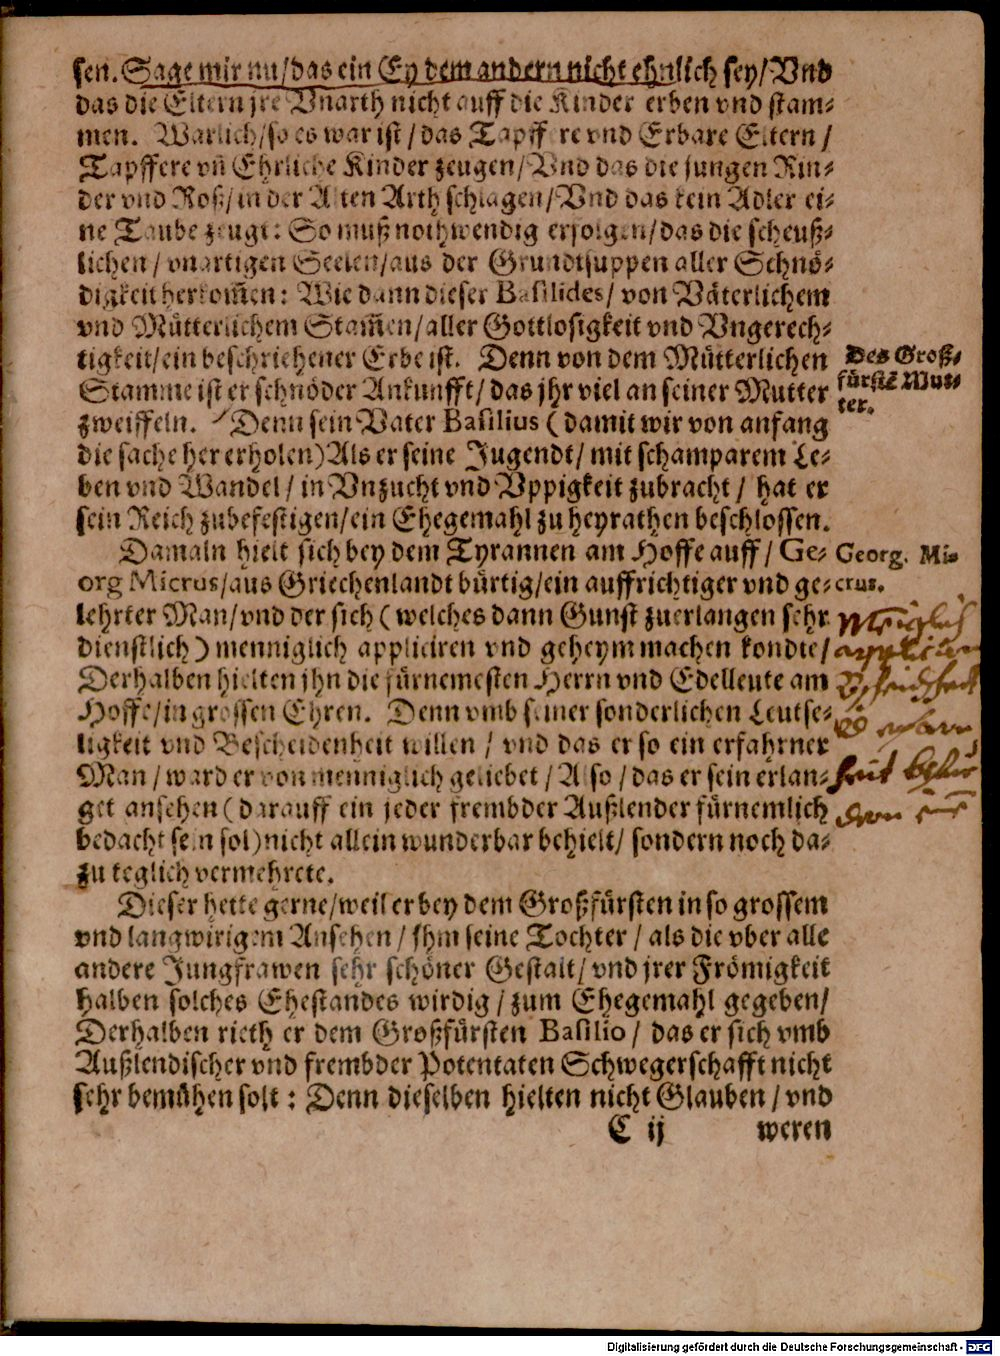 sen. Sage mir nu/das ein Ey dem andern nicht ehnlich sey/Vnd
das die Eltern jre Vnarth nicht auff die Kinder erben vnd stam-
men. Warlich/so es war ist/das Tapffere vnd Erbare Eltern/
Tapffere vñ Ehrliche Kinder zeugen/Vnd das die jungen Rin-
der vnd Roß/in der Alten Arth schlagen/Vnd das kein Adler ei-
ne Taube zeugt: So muß nothwendig erfolgen/das die scheuß-
lichen/vnartigen Seelen/aus der Grundtsuppen aller Schnö-
digkeit herkom̃en: Wie dann dieser Basilides/von Väterlichem
vnd Mütterlichem Stam̃en/aller Gottlosigkeit vnd Vngerech-
tigkeit/ein beschriehener Erbe ist. Denn von dem Mütterlichen
Des Groß-
Stamme ist er schnöder Ankunfft/das jhr viel an seiner Mutter
fürstē Mut-
ter.
zweiffeln. Denn sein Vater Basilius (damit wir von anfang
die sache her erholen) Als er seine Jugendt/mit schamparem Le-
ben vnd Wandel/in Vnzucht vnd Vppigkeit zubracht/hat er
sein Reich zubefestigen/ein Ehegemahl zu heyrathen beschlossen.
Damaln hielt sich bey dem Tyrannen am Hoffe auff/Ge-
Georg. Mi-
org Micrus/aus Griechenlandt bürtig/ein auffrichtiger vnd ge-
crus.
lehrter Man/vnd der sich (welches dann Gunst zuerlangen sehr
dienstlich) menniglich appliciren vnd geheym machen kondte/
Derhalben hielten jhn die fürnemesten Herrn vnd Edelleute am
Hoffe/in grossen Ehren. Denn vmb seiner sonderlichen Leutse-
ligkeit vnd Bescheidenheit willen/vnd das er so ein erfahrner
Man/ward er von menniglich geliebet/Also/das er sein erlan-
get ansehen (darauff ein jeder frembder Außlender fürnemlich
bedacht sein sol) nicht allein wunderbar behielt/sondern noch da-
zu teglich vermehrete.
Dieser hette gerne/weil er bey dem Großfürsten in so grossem
vnd langwirigem Ansehen/jhm seine Tochter/als die vber alle
andere Jungfrawen sehr schöner Gestalt/vnd jrer Frömigkeit
halben solches Ehestandes wirdig/zum Ehegemahl gegeben/
Derhalben rieth er dem Großfürsten Basilio/das er sich vmb
Außlendischer vnd frembder Potentaten Schwegerschafft nicht
sehr bemühen solt: Denn dieselben hielten nicht Glauben/vnd
C ij weren
Digitalisierung gefördert durch die Deutsche Forschungsgemeinschaft - DFG